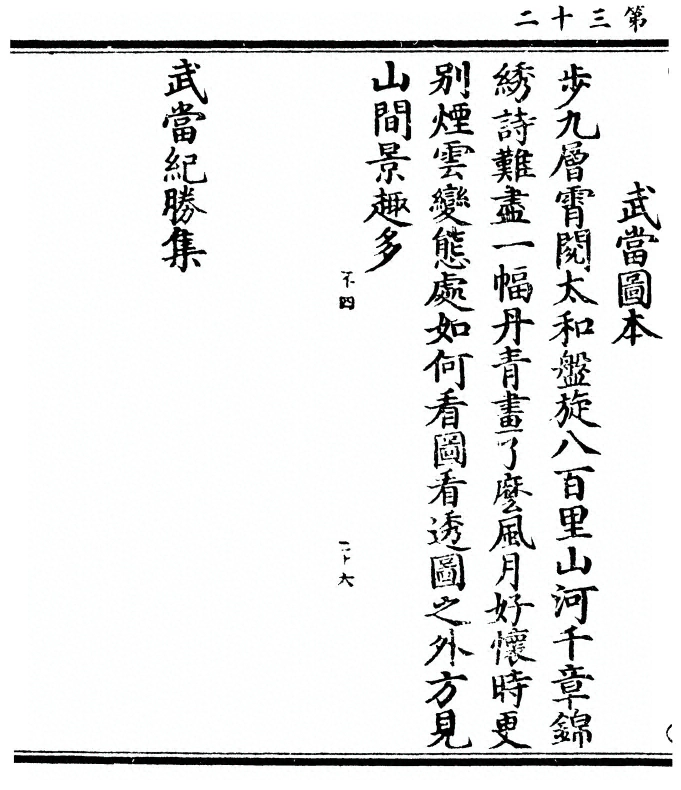 第三十二
武當圖本
步九層霄閱太和盤旋八百里山河千章錦
綉詩難盡一幅丹青畫了麼風月好懷時更
别煙雲變態處如何看圖看透圖之外方見
山間景趣多
不四
二十六
武當紀勝集